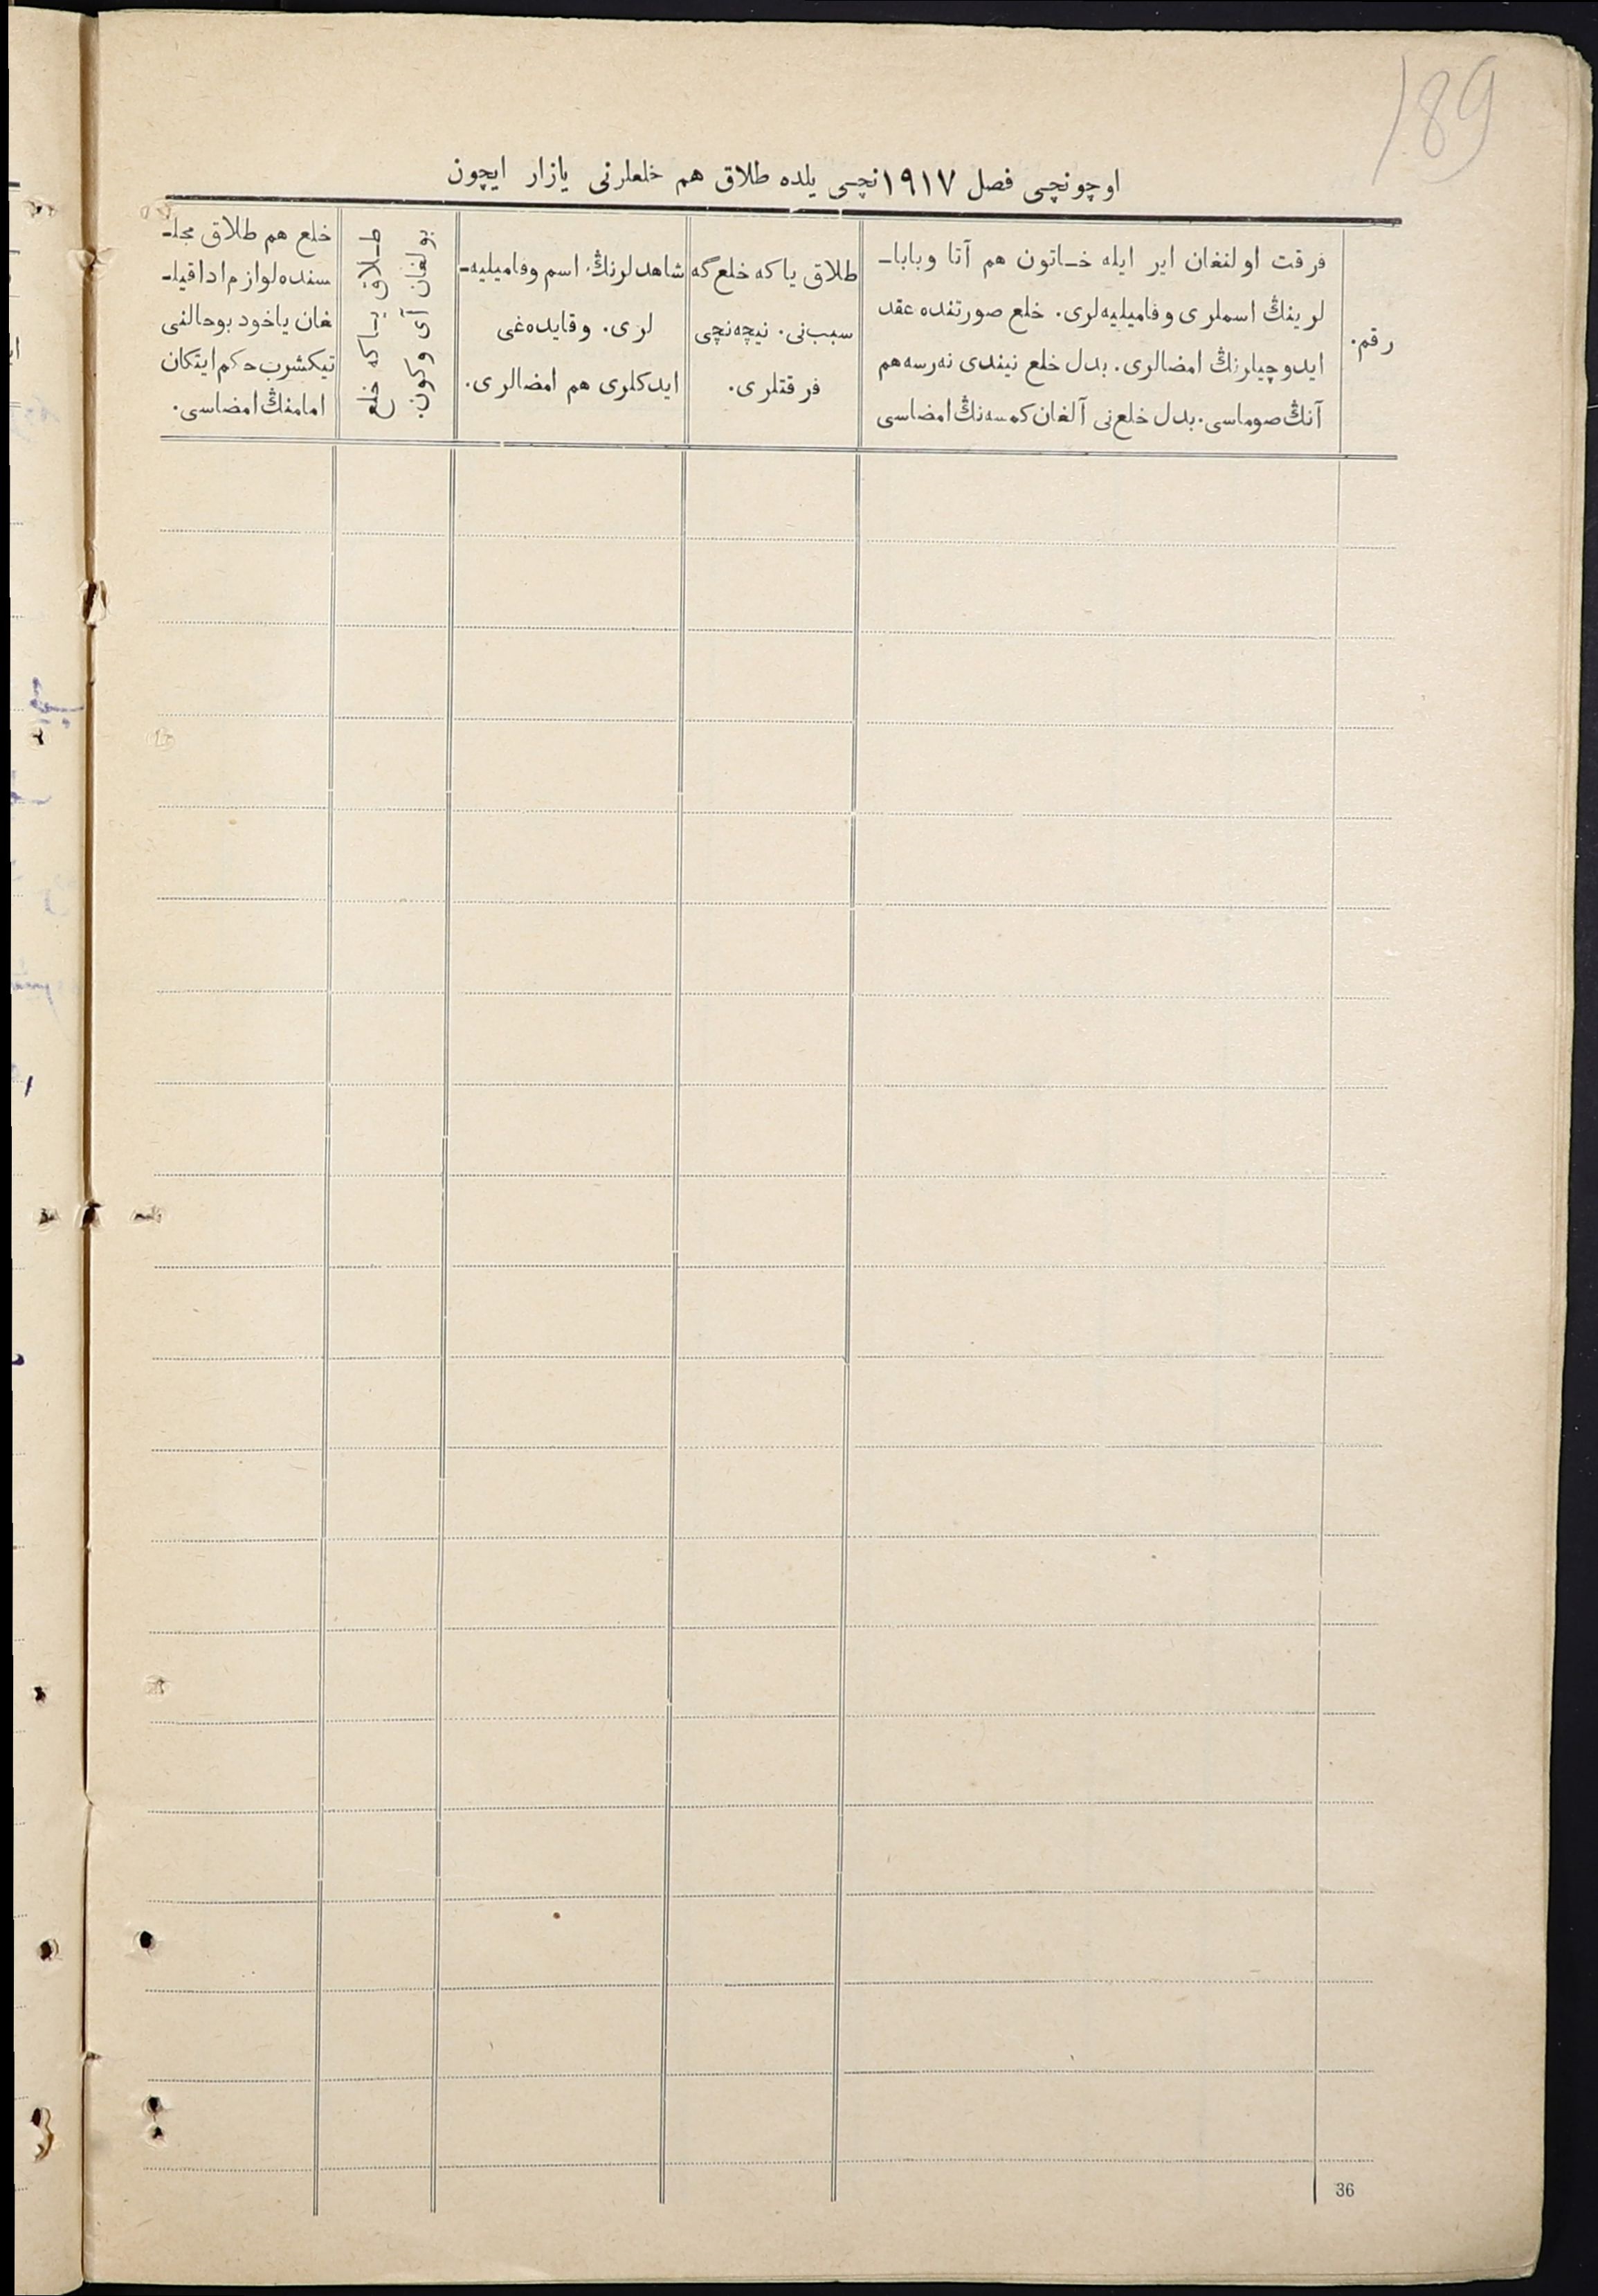 189
اوچونچی فصل ۱۹۱۷نچی یلده طلاق هم خلعلرنی یازار ایچون
رقم.
فرقت اولنغان ایر ایله خـاتون هم آتا وبابا-
لرینڭ اسملری وفامیلیه‌لری. خلع صورتنده عقد
ایدوچیلرنڭ امضالری. بدل خلع نیندی نه‌رسه هم
آنڭ صوماسی. بدل خلع‌نی آلغان کمسه‌نڭ امضاسی
طلاق یا که خلع گه
سبب نی. نیچه‌نچی
فرقتلری.
شاهدلرنڭ اسم وفامیلیه-
لری. وقایده‌غی
ایدکلری هم امضالری.
طـلاق یـاکه خلع
بولغان آی وکون.
خلع هم طلاق مجلـ
سنده لوازم ادا قیلـ
غان یاخود بوحالنی
تیکشرب حکم ایتکان
امامنڭ امضاسی.
36